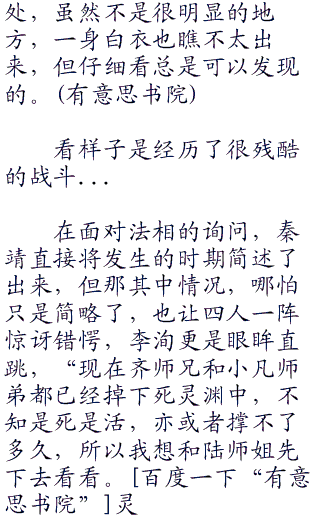 处，虽然不是很明显的地
方，一身白衣也瞧不太出
来，但仔细看总是可以发现
的。(有意思书院)
看样子是经历了很残酷
的战斗...
在面对法相的询问，秦
靖直接将发生的时期简述了
出来，但那其中情况，哪怕
只是简略了，也让四人一阵
惊讶错愕，李洵更是眼眸直
跳，“现在齐师兄和小凡师
弟都已经掉下死灵渊中，不
知是死是活，亦或者撑不了
多久，所以我想和陆师姐先
下去看看。[百度一下“有意
思书院”]灵